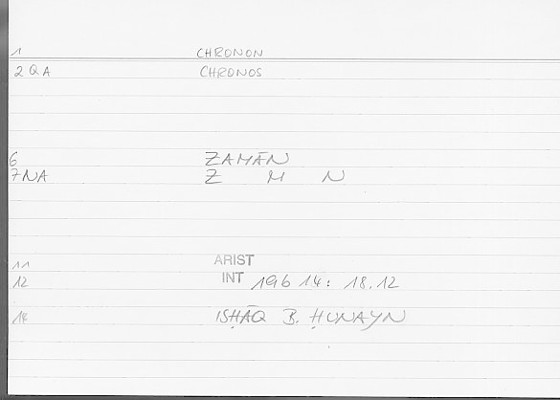 1 CHRONON
2 QA CHRONOS
6 ZAMĀN
7NA Z M N
11 ARIST
12 INT 19b 14: 18.12
14 ISḤĀQ B. ḤUNAYN